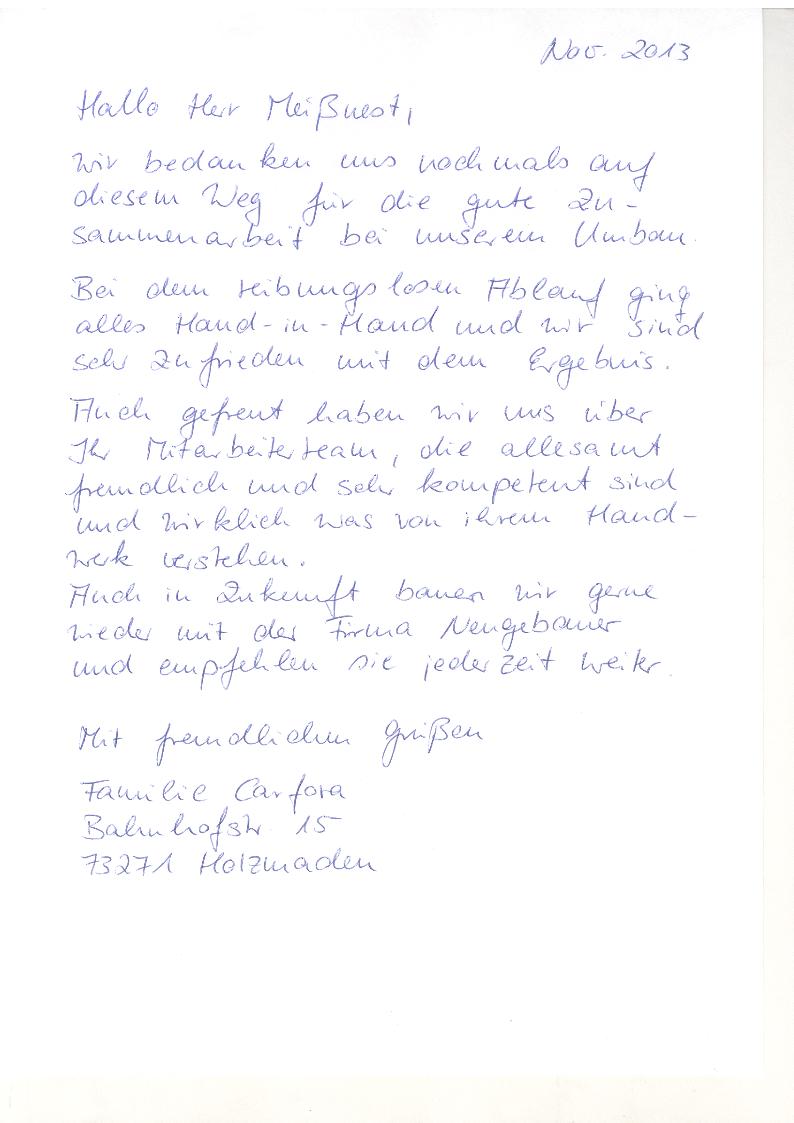 Nov. 2013
Hallo Herr Meißnest,
wir bedanken uns nochmals auf
diesem Weg für die gute Zu-
sammenarbeit bei unserem Umbau.
Bei dem reibungslosen Ablauf ging
alles Hand-in-Hand und wir sind
sehr zufrieden mit dem Ergebnis.
Auch gefreut haben wir uns über
Ihr Mitarbeiterteam, die allesamt
freundlich und sehr kompetent sind
und wirklich was von ihrem Hand-
werk verstehen.
Auch in Zukunft bauen wir gerne
wieder mit der Firma Neugebauer
und empfehlen sie jederzeit weiter.
Mit freundlichen Grüßen
Familie Carfora
Bahnhofstr. 15
73271 Holzmaden